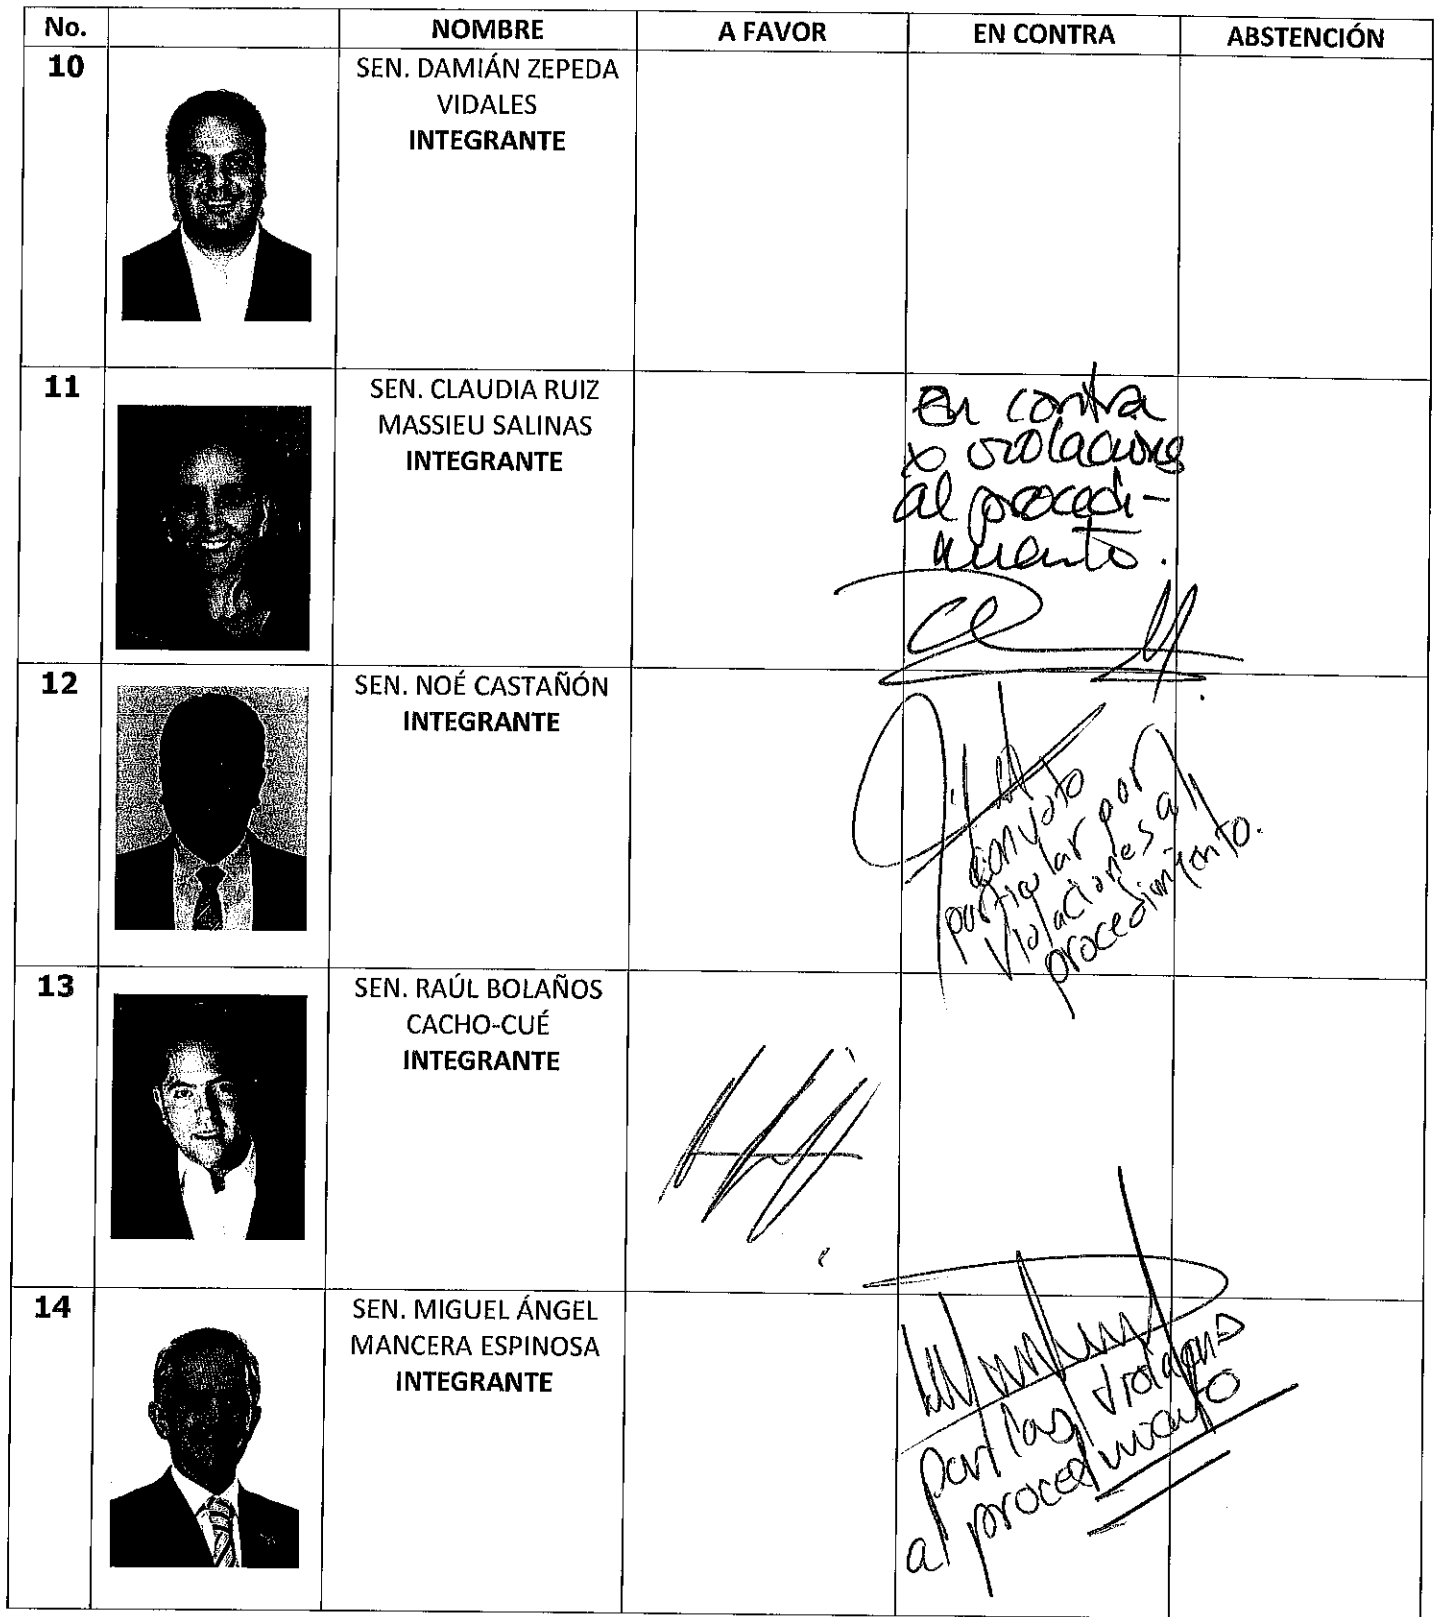 No. NOMBRE A FAVOR EN CONTRA ABSTENCIÓN
10 SEN. DAMIÁN ZEPEDA
VIDALES
INTEGRANTE
11 SEN. CLAUDIA RUIZ
MASSIEU SALINAS
INTEGRANTE
En contra
x violaciones
al procedi-
miento.
12 SEN. NOÉ CASTAÑÓN
INTEGRANTE
con voto
particular por
violaciones al
procedimiento.
13 SEN. RAÚL BOLAÑOS
CACHO-CUÉ
INTEGRANTE
14 SEN. MIGUEL ÁNGEL
MANCERA ESPINOSA
INTEGRANTE
por las violaciones
al procedimiento